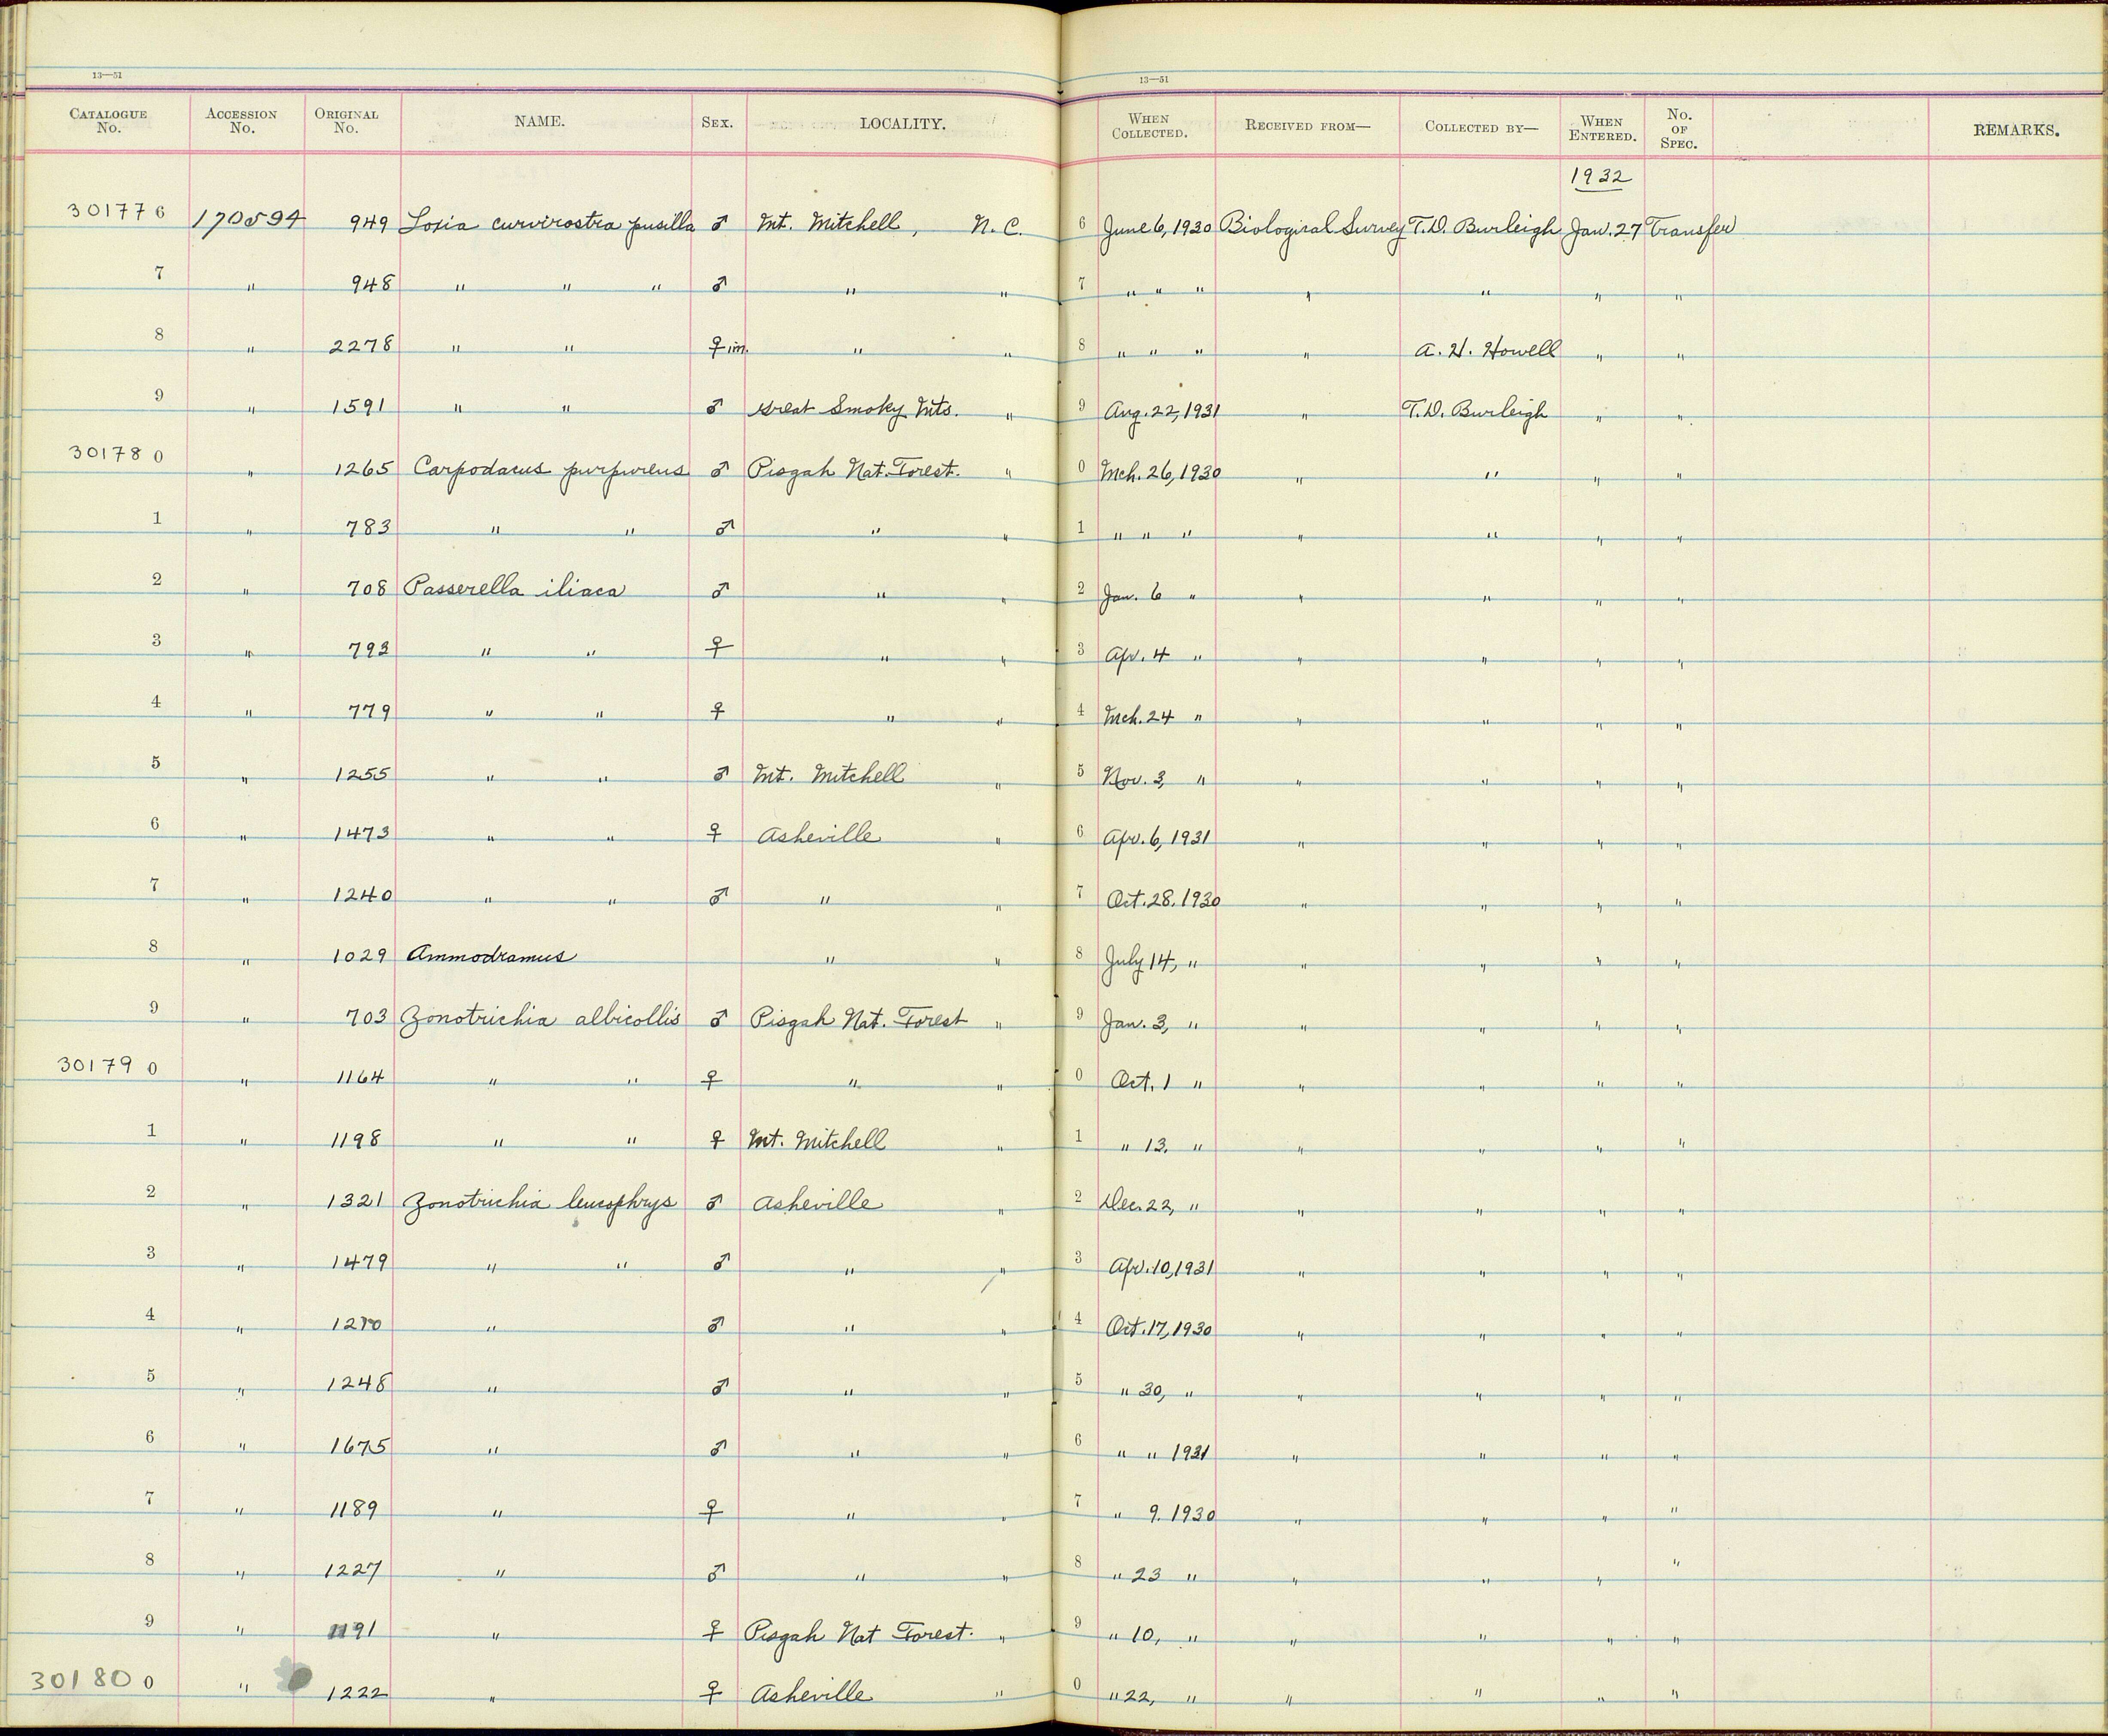 13—51 13—51
CATALOGUE No. ACCESSION No. ORIGINAL No. NAME. SEX. LOCALITY. WHEN COLLECTED. RECEIVED FROM— COLLECTED BY— WHEN ENTERED. No. OF SPEC. REMARKS.
1932
301776 170594 949 Loxia curvirostra pusilla ♂ Mt. Mitchell, N. C. 6 June 6, 1930 Biological Survey T. D. Burleigh Jan. 27 Transfer
7 " 948 " " " ♂ " " 7 " " " " " " "
8 " 2278 " " ♀ im. " " 8 " " " " A. H. Howell " "
9 " 1591 " " ♂ Great Smoky Mts. " 9 Aug. 22, 1931 " T. D. Burleigh " "
301780 " 1265 Carpodacus purpureus ♂ Pisgah Nat. Forest. " 0 Mch. 26, 1930 " " " "
1 " 783 " " ♂ " " 1 " " " " " " "
2 " 708 Passerella iliaca ♂ " " 2 Jan. 6 " " " " "
3 " 793 " " ♀ " " 3 Apr. 4 " " " " "
4 " 779 " " ♀ " " 4 Mch. 24 " " " " "
5 " 1255 " " ♂ Mt. Mitchell " 5 Nov. 3, " " " " "
6 " 1473 " " ♀ Asheville " 6 Apr. 6, 1931 " " " "
7 " 1240 " " ♂ " " 7 Oct. 28, 1930 " " " "
8 " 1029 Ammodramus " " 8 July 14, " " " " "
9 " 703 Zonotrichia albicollis ♂ Pisgah Nat. Forest " 9 Jan. 3, " " " " "
301790 " 1164 " " ♀ " " 0 Oct. 1 " " " " "
1 " 1198 " " ♀ Mt. Mitchell " 1 " 13, " " " " "
2 " 1321 Zonotrichia leucophrys ♂ Asheville " 2 Dec. 22, " " " " "
3 " 1479 " " ♂ " " 3 Apr. 10, 1931 " " " "
4 " " ♂ " " 4 Oct. 17, 1930 " " " "
5 " 1248 " ♂ " " 5 " 30, " " " " "
6 " 1675 " ♂ " " 6 " " 1931 " " " "
7 " 1189 " ♀ " " 7 " 9. 1930 " " " "
8 " 1227 " ♂ " " 8 " 23 " " " " "
9 " 1191 " ♀ Pisgah Nat Forest. " 9 " 10, " " " " "
301800 " 1222 " ♀ Asheville " 0 " 22, " " " " "